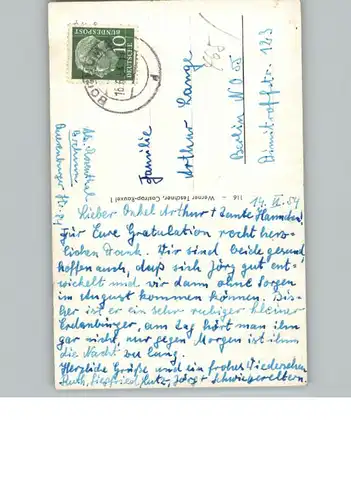 10
DEUTSCHE
BUNDESPOST
Abs. Rosenthal
Bochum
Familie
Arthur Lange
Berlin NO 55
Dimitroffstr. 123
116 — Werner Taschner, Castrop-Rauxel I
14. 54
Lieber Onkel Arthur + Tante Hannchen!
Für Eure Gratulation recht herz-
lichen Dank. Wir sind beide gesund
hoffen auch, daß sich Jörg gut ent-
wickelt und wir dann ohne Sorgen
im August kommen können. Bis-
her ist er ein sehr ruhiger kleiner
Erdenbürger, am Tag hört man ihn
gar nicht, nur gegen Morgen ist ihm
die Nacht zu lang.
Herzliche Grüße und ein frohes Wiedersehen
Ruth, Siegfried, Lutz, Jörg + Schwiegereltern.